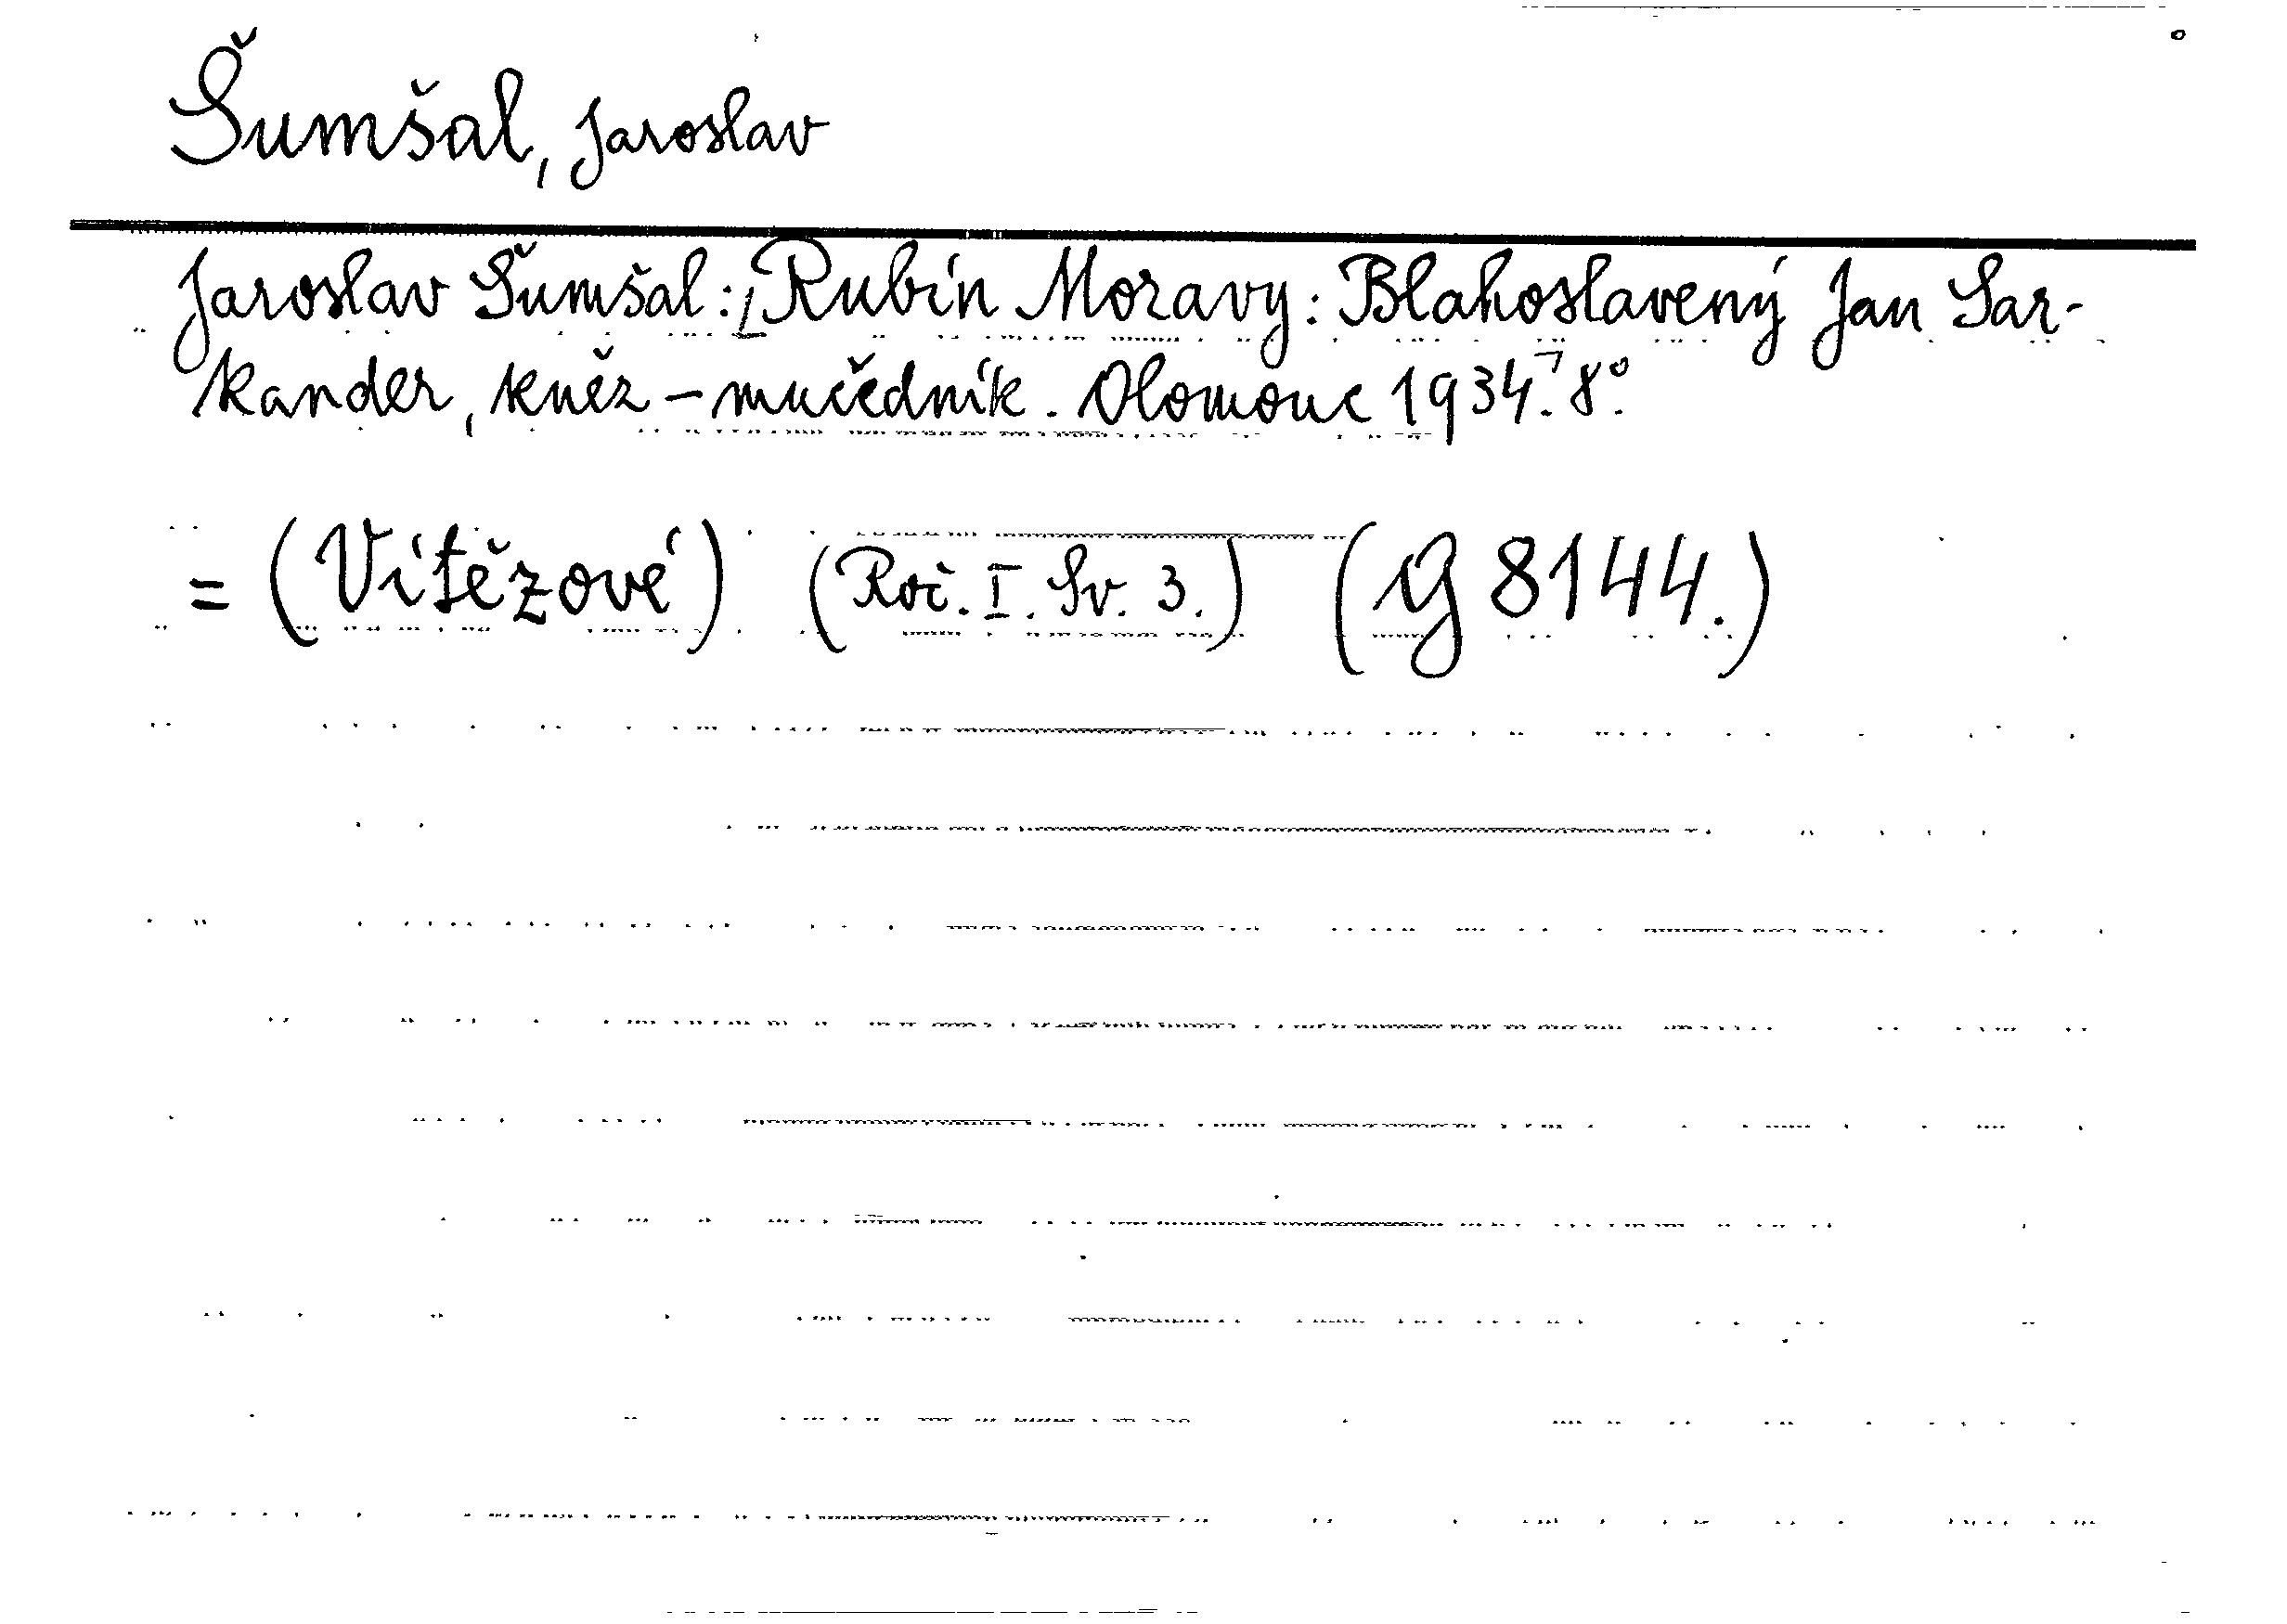 Šumšal, Jaroslav
Jaroslav Šumšal: [Rubín Moravy: Blahoslavený Jan Sar-
kander, kněz - mučedník. Olomouc 1934.] 8°.
= (Vítězové) (Roč. I. Sv. 3.) (G 8144.)